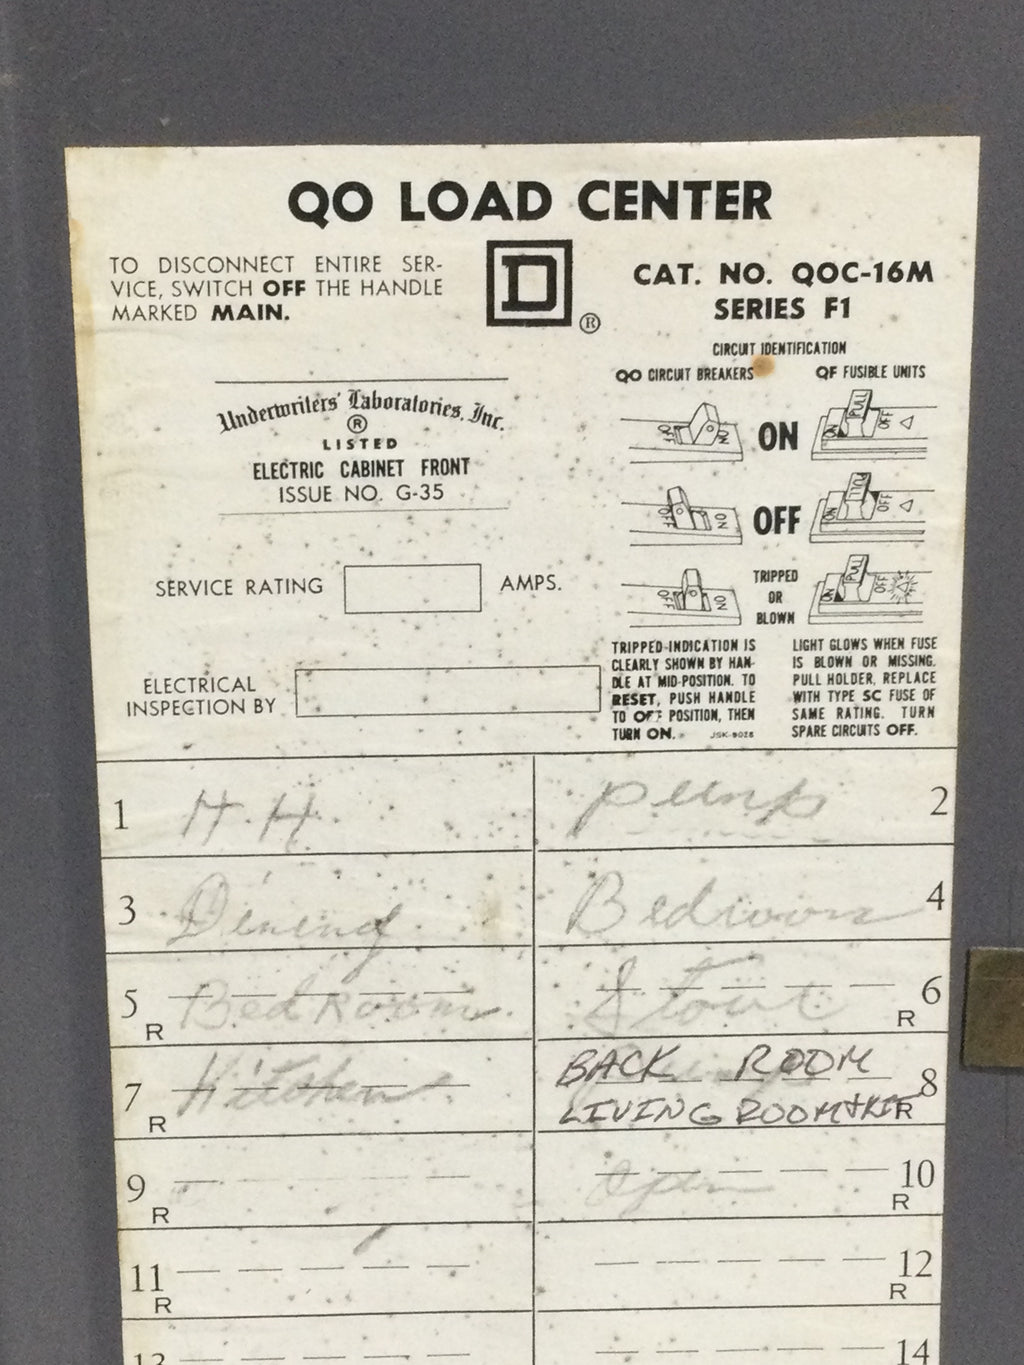 QO LOAD CENTER
TO DISCONNECT ENTIRE SER-
VICE, SWITCH OFF THE HANDLE
MARKED MAIN.
D
®
CAT. NO. QOC-16M
SERIES F1
CIRCUIT IDENTIFICATION
QO CIRCUIT BREAKERS
QF FUSIBLE UNITS
Underwriters' Laboratories, Inc.
®
LISTED
ELECTRIC CABINET FRONT
ISSUE NO. G-35
OFF NO ON ON PULL OFF
OFF NO OFF ON PULL OFF
OFF NO TRIPPED OR BLOWN ON PULL OFF
SERVICE RATING AMPS.
ELECTRICAL
INSPECTION BY
TRIPPED-INDICATION IS
CLEARLY SHOWN BY HAN-
DLE AT MID-POSITION. TO
RESET, PUSH HANDLE
TO OFF POSITION, THEN
TURN ON. JSK-9028
LIGHT GLOWS WHEN FUSE
IS BLOWN OR MISSING.
PULL HOLDER, REPLACE
WITH TYPE SC FUSE OF
SAME RATING. TURN
SPARE CIRCUITS OFF.
1 H.H. pump 2
3 Dining Bedroom 4
5 R Bedroom Stove 6 R
7 R Kitchen
BACK ROOM 8
LIVING ROOM & KIT R
9 R Open 10 R
11 R 12 R
13 14